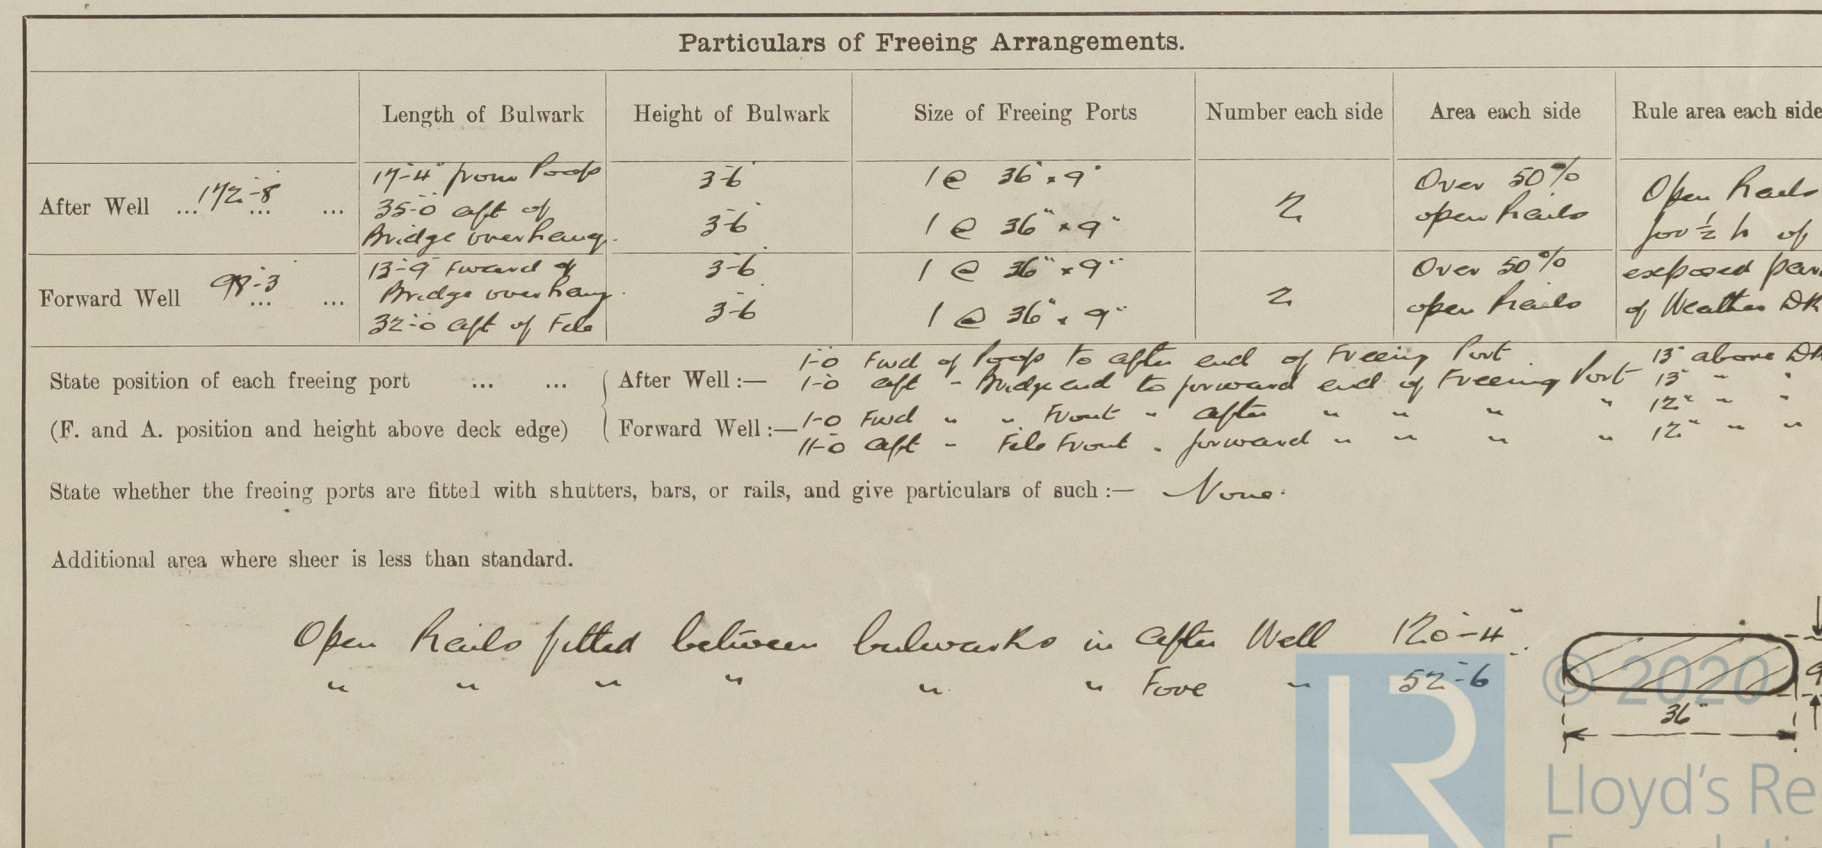 Particulars of Freeing Arrangements.
Length of Bulwark Height of Bulwark Size of Freeing Ports Number each side Area each side Rule area each side
After Well ... 172'-8" ... ...
17'-4" from Poop
35'-0 aft of
Bridge overhang.
3'-6"
3'-6"
1 @ 36" × 9"
1 @ 36" × 9"
2
Over 50%
open Rails
Open Rails
for ½ h of
Forward Well 98'-3 ... ...
13'-9" Fward of
Bridge overhang.
32'-0 aft of Fcle
3'-6
3'-6
1 @ 36" × 9"
1 @ 36" × 9"
2
Over 50%
open Rails
exposed par
of Weather DK
State position of each freeing port ... ...
(F. and A. position and height above deck edge)
After Well :— 1'-0 Fwd of Poop to after end of Freeing Port 13" above DK
1'-0 aft " Bridge end to forward end of Freeing Port 13" " "
Forward Well :— 1'-0 Fwd " " Front " after " " " " 12" " "
11'-0 aft " Fcle Front " forward " " " " 12" " "
State whether the freeing ports are fitted with shutters, bars, or rails, and give particulars of such :— None.
Additional area where sheer is less than standard.
Open Rails fitted between bulwarks in After Well 120'-4"
" " " " " " Fore " 52'-6
36"
9
© 2020
LR
Lloyd's Re